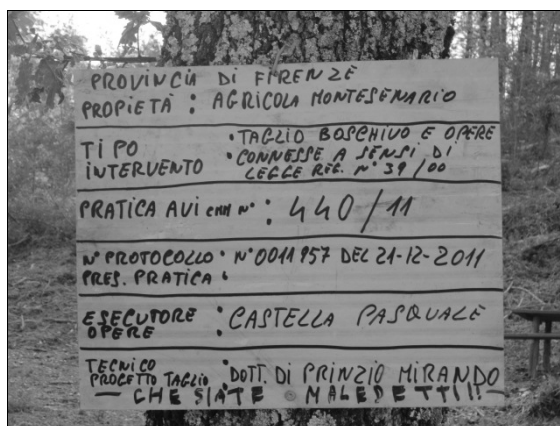 PROVINCIA DI FIRENZE
PROPIETÀ : AGRICOLA MONTESENARIO
TIPO INTERVENTO
• TAGLIO BOSCHIVO E OPERE
• CONNESSE A SENSI DI
LEGGE REG. N° 39/00
PRATICA AVI CMM N° : 440/11
N° PROTOCOLLO : N° 0011957 DEL 21-12-2011
PRES. PRATICA :
ESECUTORE OPERE : CASTELLA PASQUALE
TECNICO
PROGETTO TAGLIO : DOTT. DI PRINZIO MIRANDO
— CHE SIATE MALEDETTI!!! —